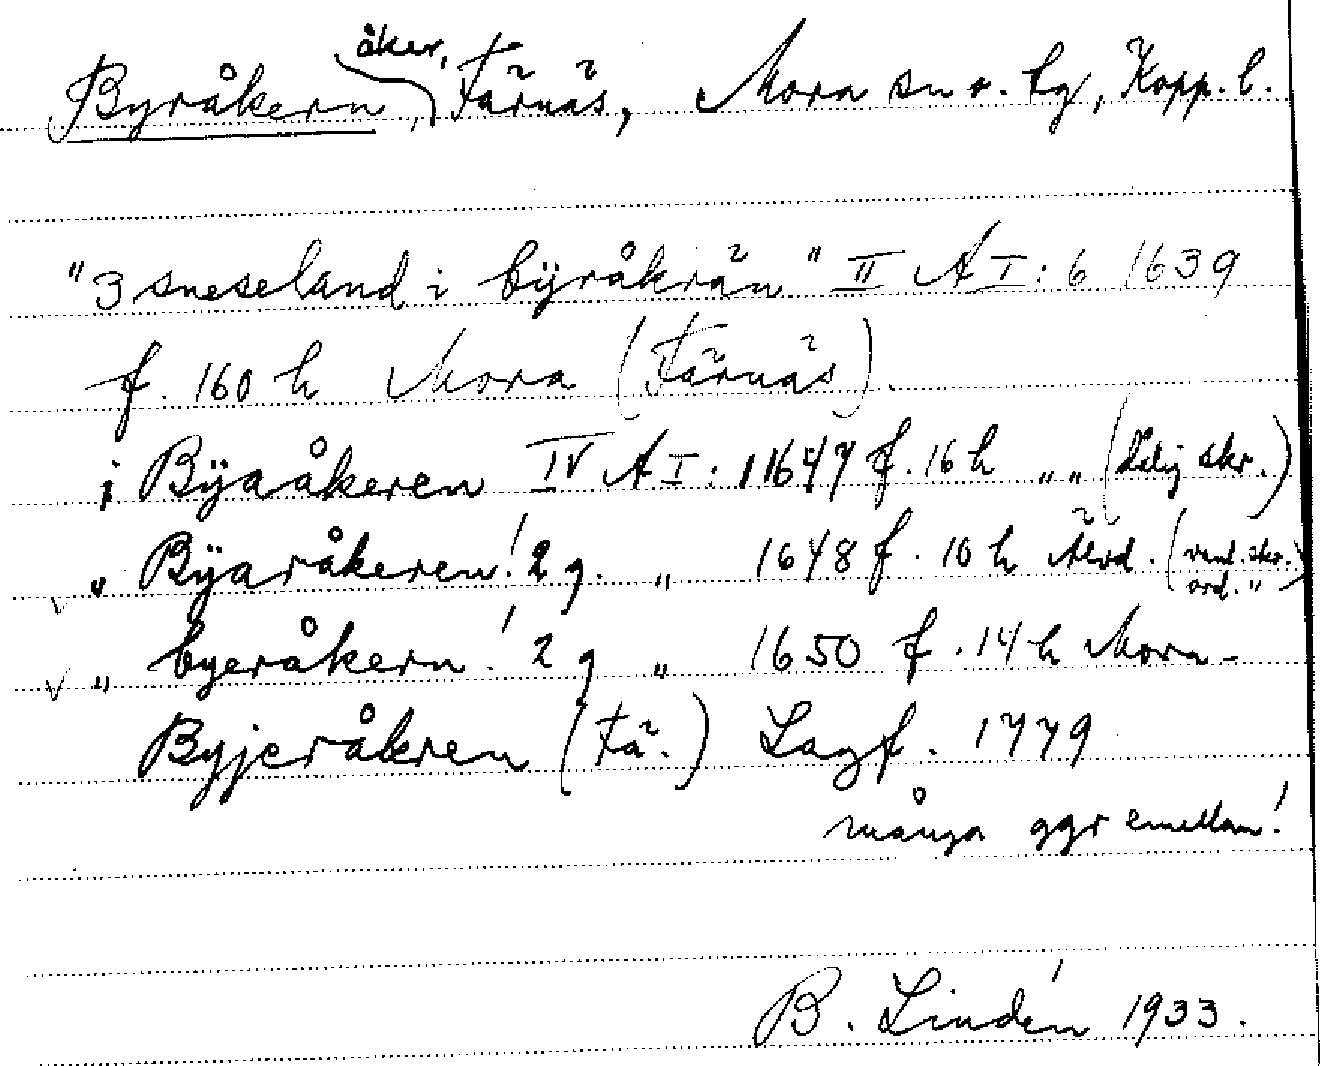 Byråkern, åker, Färnäs, Mora sn o. tg, Kopp. l.
"3 sneseland i bÿråkrän" II A I: 6 1639
f. 160 h Mora (Färnäs).
i Bÿaåkeren IV A I: 1 1647 f. 16 h „ „ (Delij skr.)
„ Bÿaråkeren! 2 g. „ 1648 f. 10 h Älvd. (rand. skr. ord. „)
„ byeråkern! 2 g „ 1650 f. 14 h Mora -
Byjeråkren (Fä.) Lagf. 1779
många ggr emellan!
B. Lindén 1933.